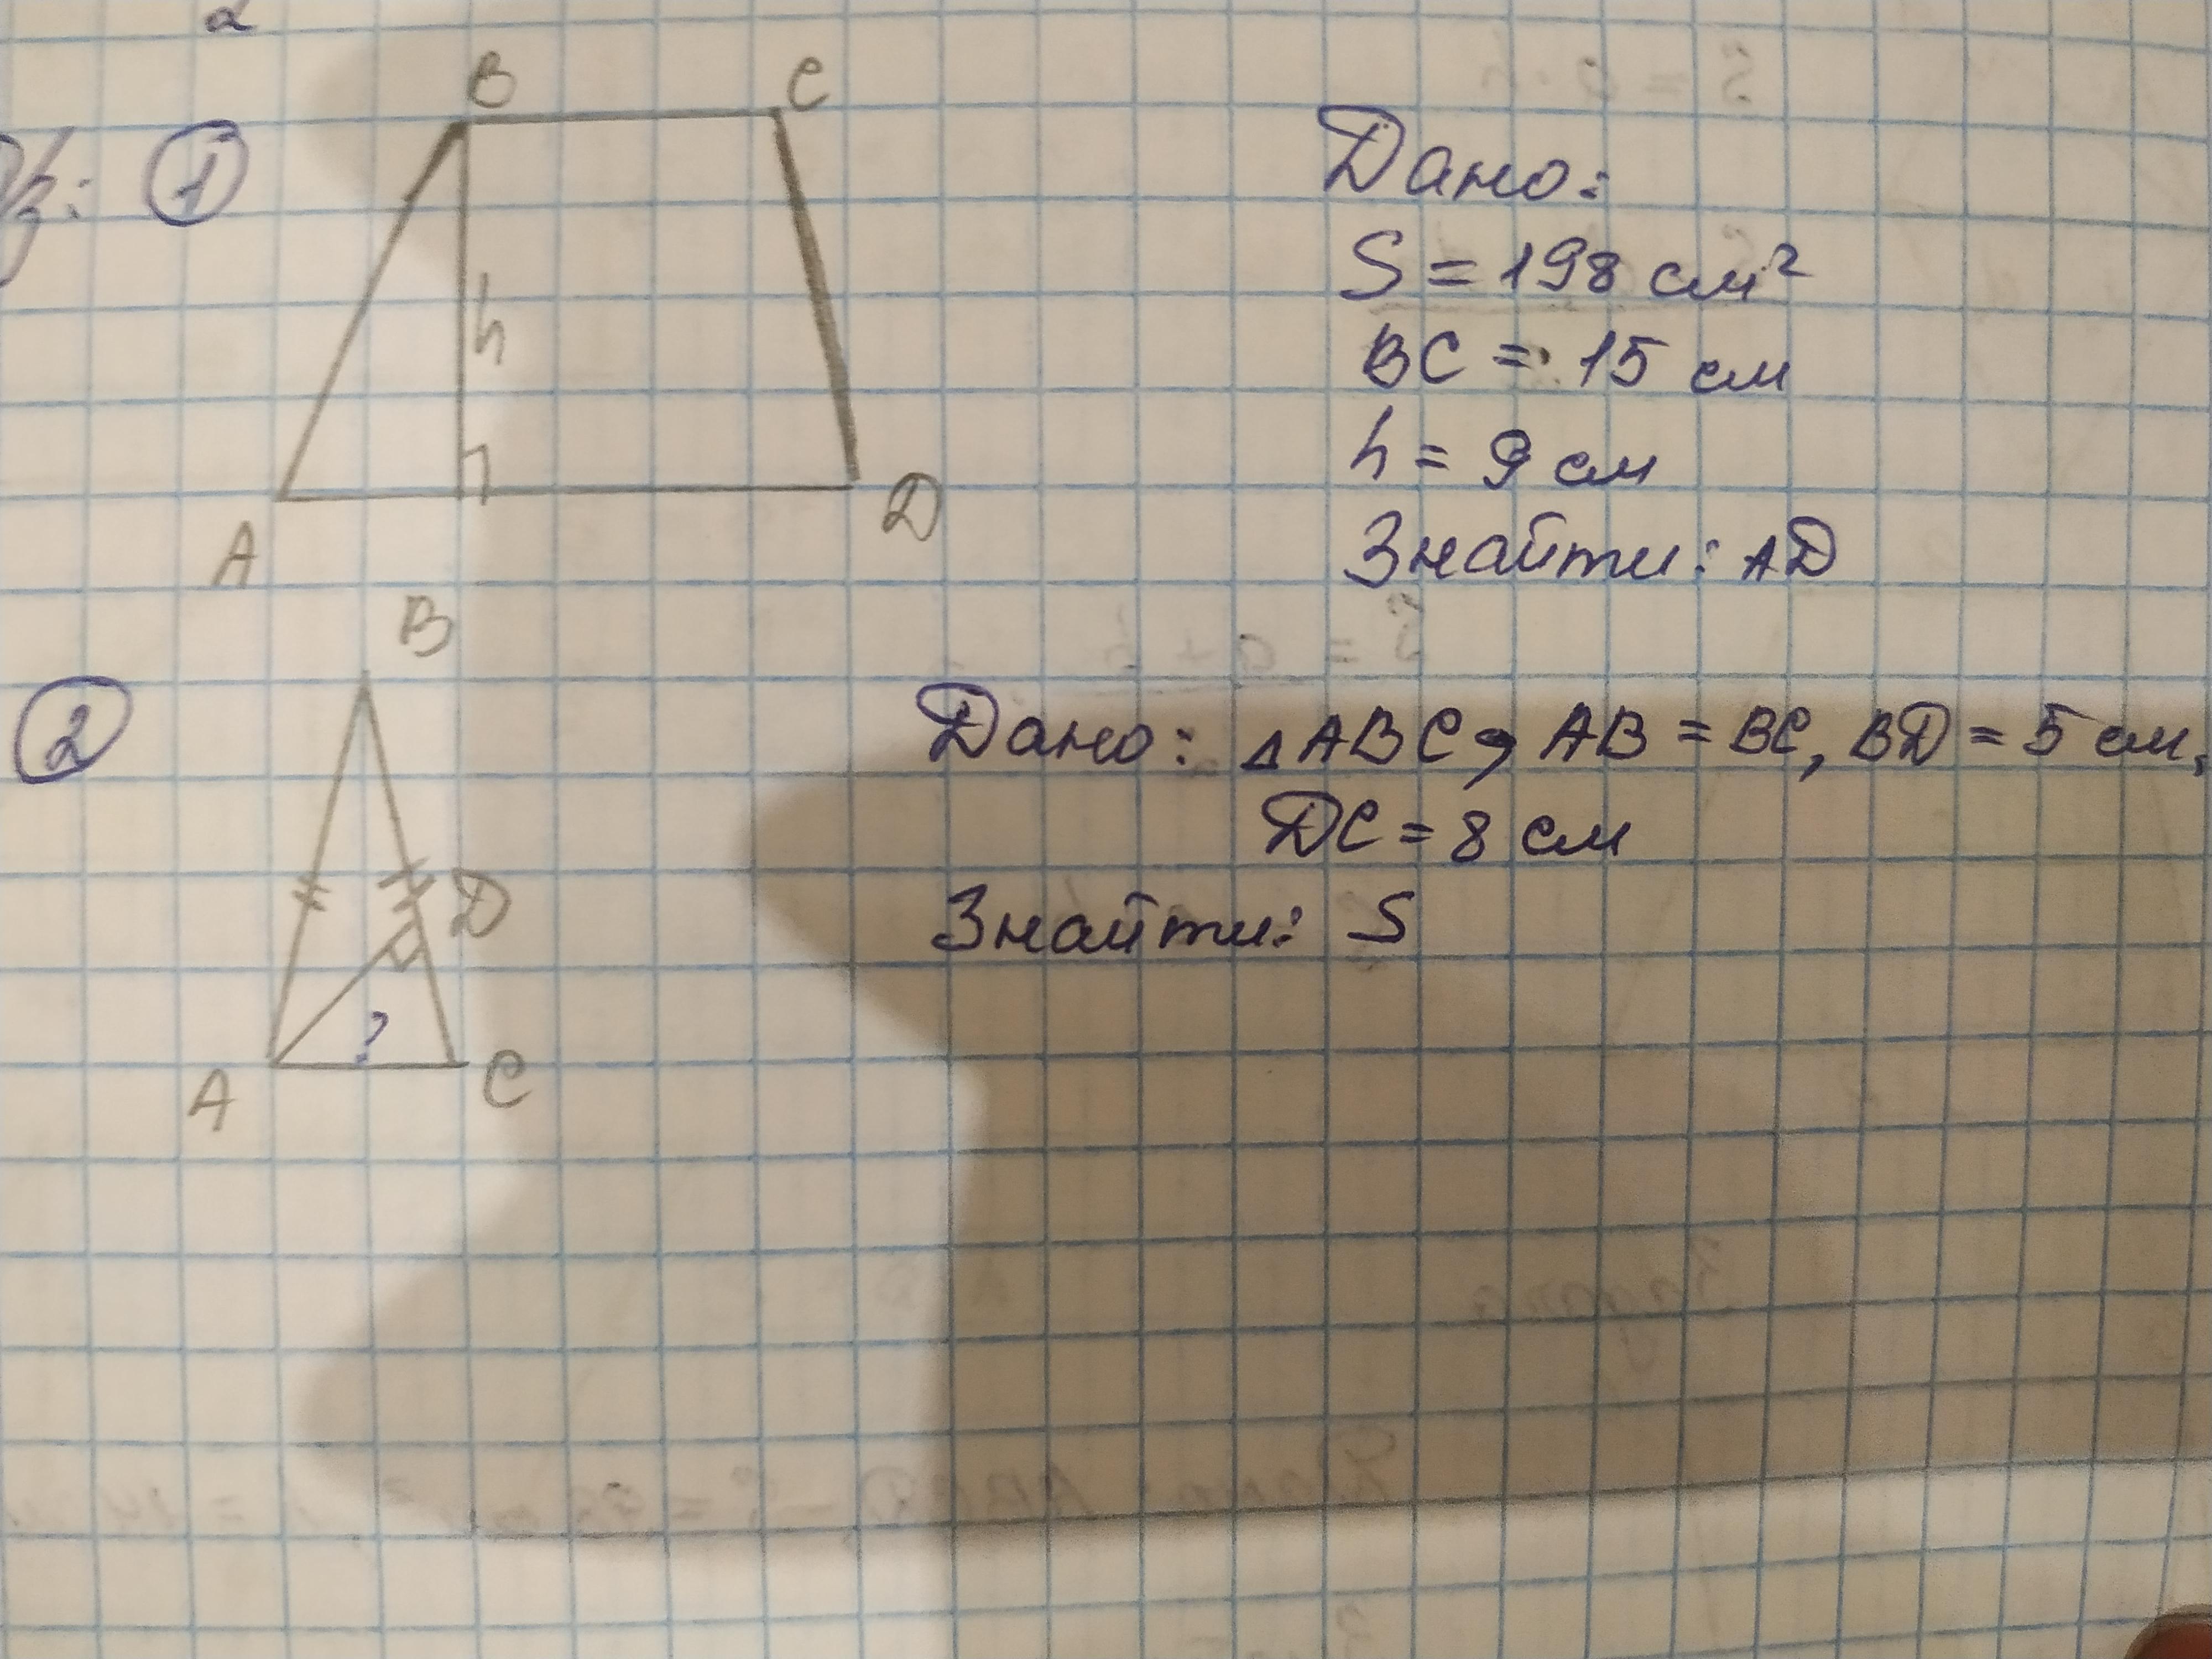 2
B C
1
Дано:
S = 198 см²
BC = 15 см
h
h = 9 см
A D
Знайти: AD
B
2
Дано: △ABC, AB = BC, BD = 5 см,
DC = 8 см
D
Знайти: S
?
A C